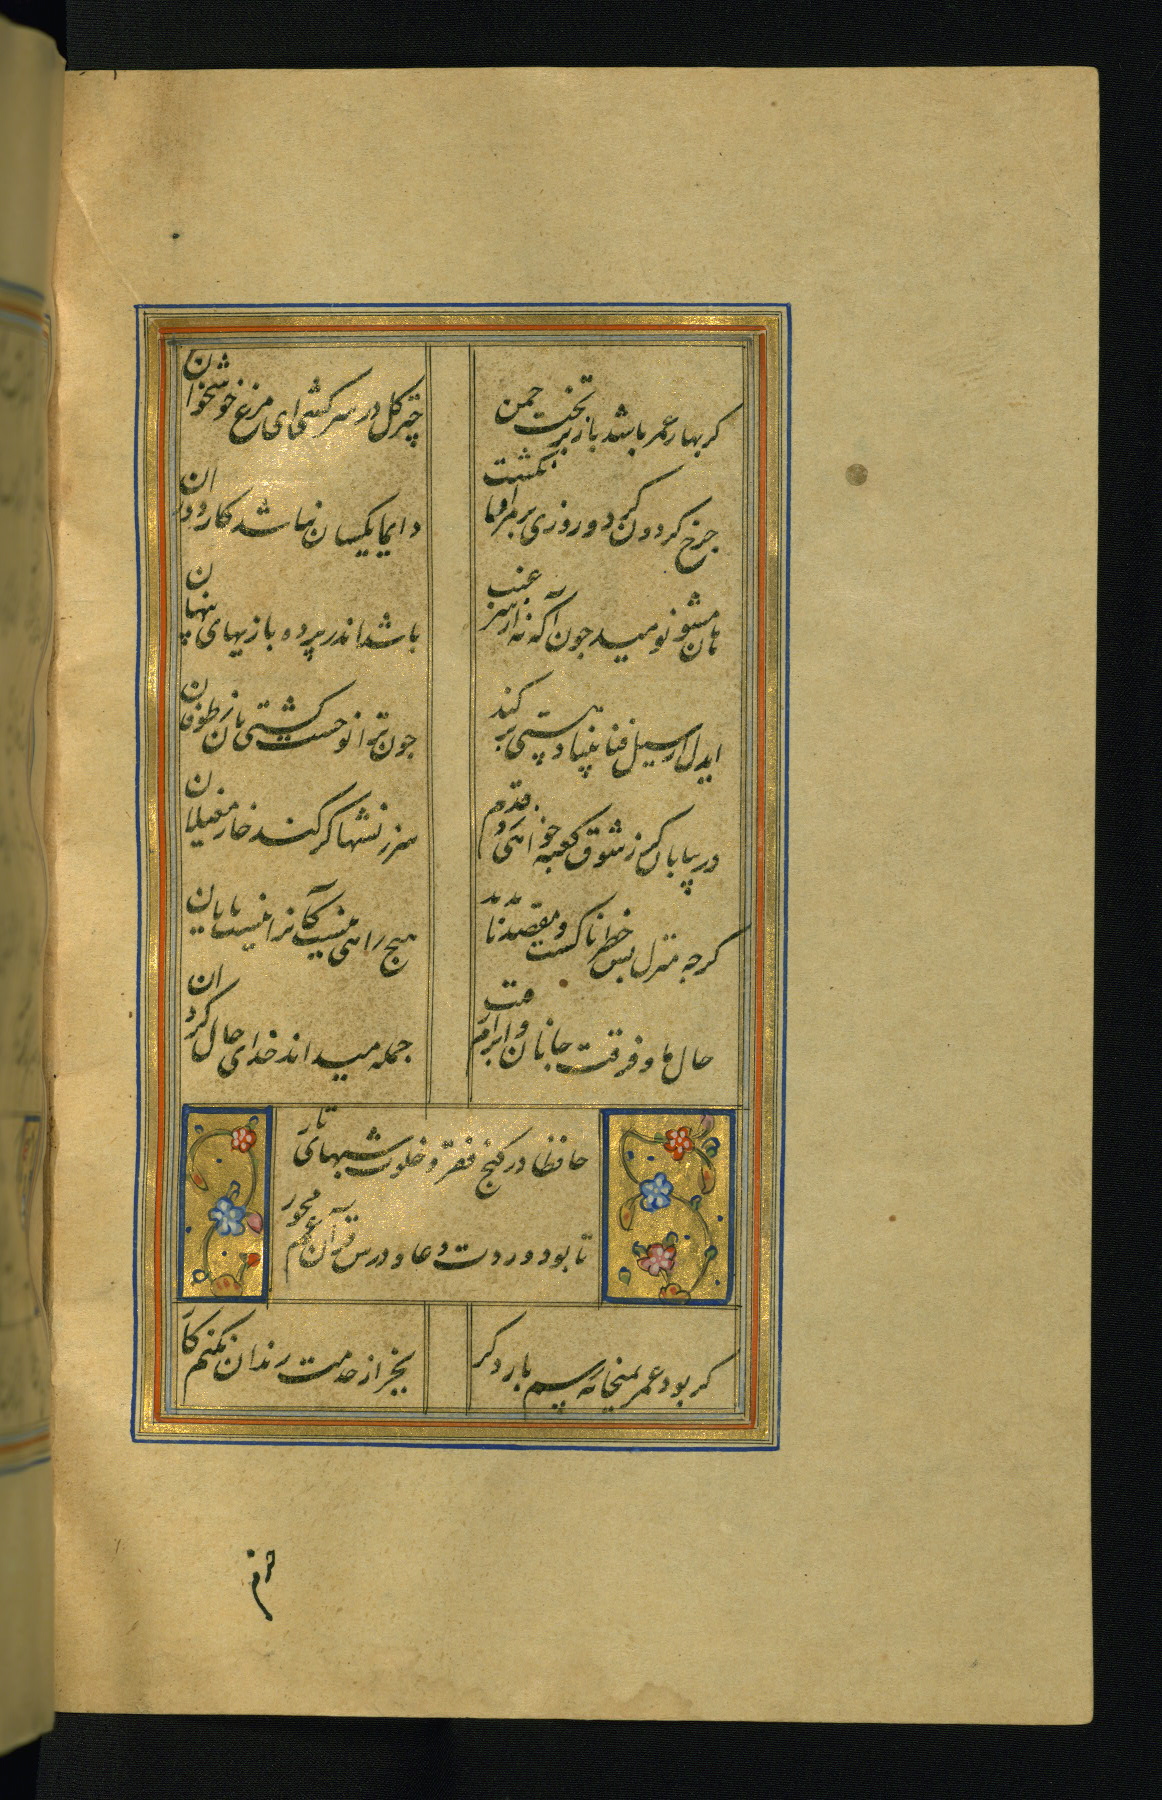 کر بهار عمر باشد باز بر تخت چمن
چتر کل در سر کشی ای مرغ خوشخوان
چرخ کردون کر دو روزی بر مراد ما نکشت
دایما یکسان نباشد کار دوران
هان مشو نومید چون آکه نه از سر غیب
باشد اندر پرده بازیهای پنهان
ایدل ار سیل فنا بنیاد هستی بر کند
چون ترا نوحست کشتیبان ز طوفان
در بیابان کر ز شوق کعبه خواهی زد قدم
سرزنشها کر کند خار مغیلان
کرچه منزل بس خطرناکست و مقصد ناپدید
هیچ راهی نیست کانرا نیست پایان
حال ما و فرقت جانان و ابرام
جمله میداند خدای حال کردان
حافظا در کنج فقر و خلوت شبهای تار
تا بود وردت دعا و درس قرآن غم مخور
کر بود عمر بمیخانه رسم بار دکر
بجز از خدمت رندان نکنم کار
خرم